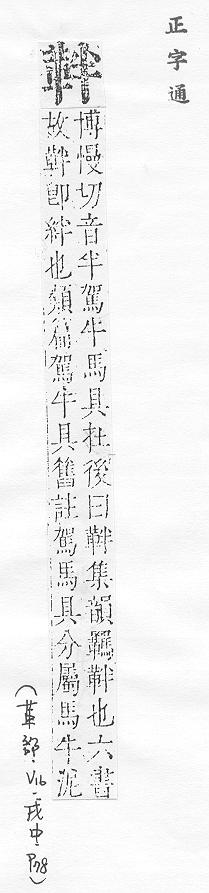 正字通
靽
博慢切音半駕牛馬具在後曰靽集韻羈靽也六書
故靽卽絆也類篇駕牛具舊註駕馬具分屬馬牛泥
(革部.V16-戌中.P78)